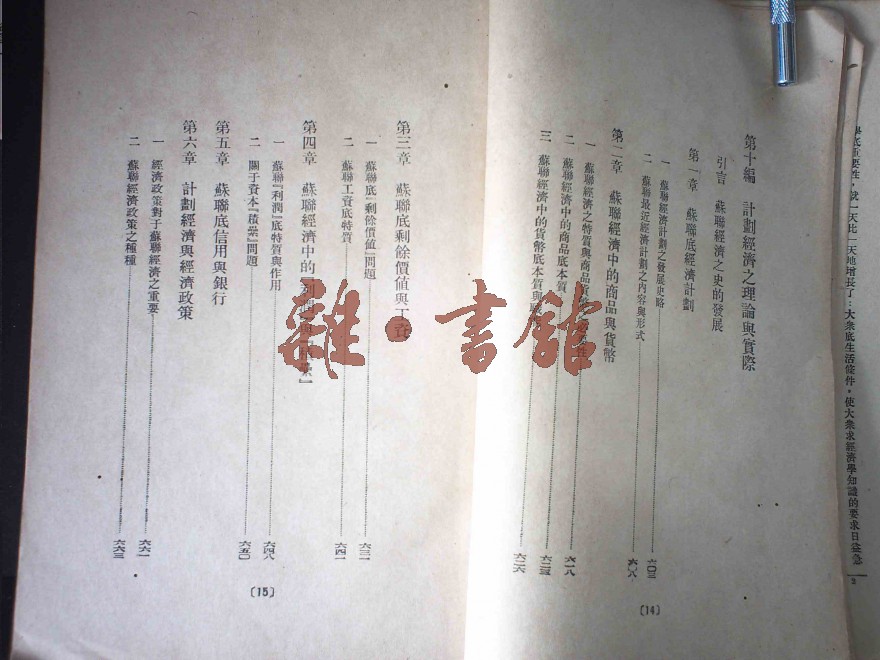 第十編 計劃經濟之理論與實際
引言 蘇聯經濟之史的發展
第一章 蘇聯底經濟計劃
一 蘇聯經濟計劃之發展史略 六〇三
二 蘇聯最近經濟計劃之內容與形式 六〇八
第二章 蘇聯經濟中的商品與貨幣
一 蘇聯經濟之特質與商品 性
二 蘇聯經濟中的商品底本質 六一八
三 蘇聯經濟中的貨幣底本質與 六二六
〔14〕
第三章 蘇聯底剩餘價値與工資
一 蘇聯底『剩餘價値』問題 六三一
二 蘇聯工資底特質 六四一
第四章 蘇聯經濟中的『利潤』與
一 蘇聯『利潤』底特質與作用 六四八
二 關于資本『積纍』問題 六五〇
第五章 蘇聯底信用與銀行
第六章 計劃經濟與經濟政策
一 經濟政策對于蘇聯經濟之重要 六六一
二 蘇聯經濟政策之種種 六六三
〔15〕
底重要性，就一天比一天地增長了：大衆底生活條件，使大衆求經濟學知識的要求日益
2
雜·書館